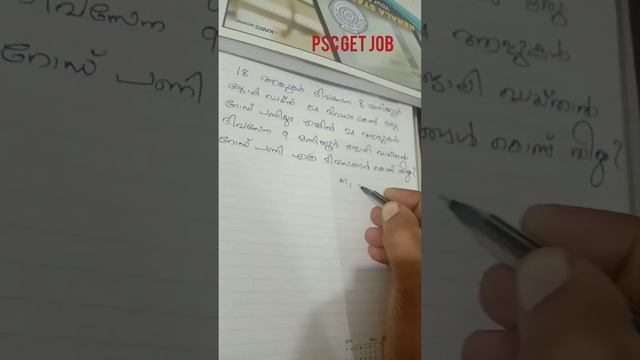 PSC GET JOB
18 ആളുകൾ ദിവസേന 8 മണിക്കൂർ
ജോലി ചെയ്ത് 54 ദിവസം കൊണ്ട് ഒരു
റോഡ് പണിയും എങ്കിൽ 24 ആളുകൾ
ദിവസേന 9 മണിക്കൂർ ജോലി ചെയ്താൽ
റോഡ് പണി എത്ര ദിവസങ്ങൾ കൊണ്ട് തീരും?
M1